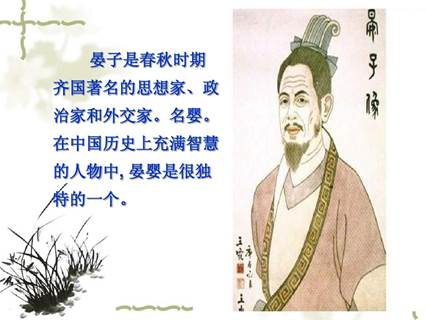 晏子是春秋时期
齐国著名的思想家、政
治家和外交家。名婴。
在中国历史上充满智慧
的人物中, 晏婴是很独
特的一个。
晏子像